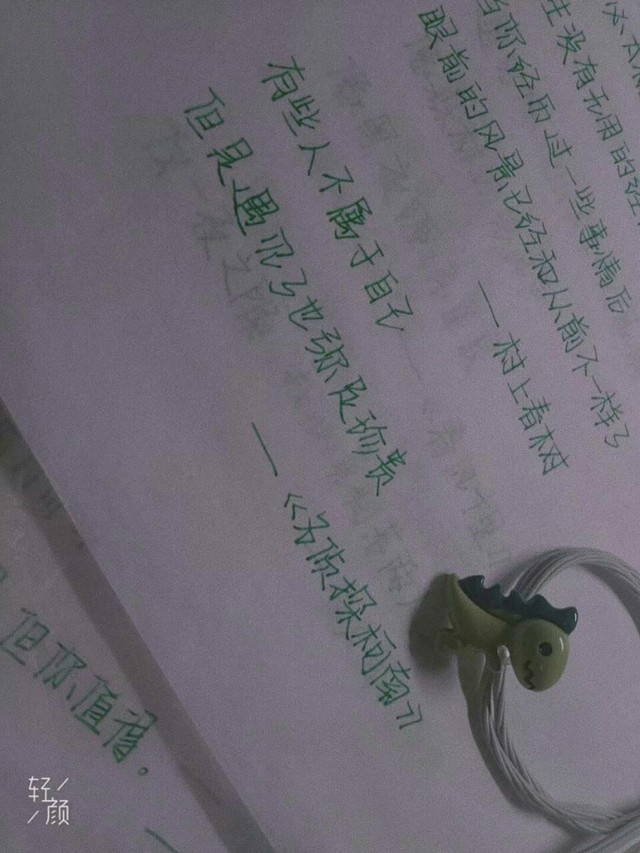 生没有无用的经
当你经历过一些事情后
眼前的风景已经和从前不一样了
——村上春树
有些人不属于自己
但是遇见了也弥足珍贵
——《名侦探柯南》
但你值得。
轻颜